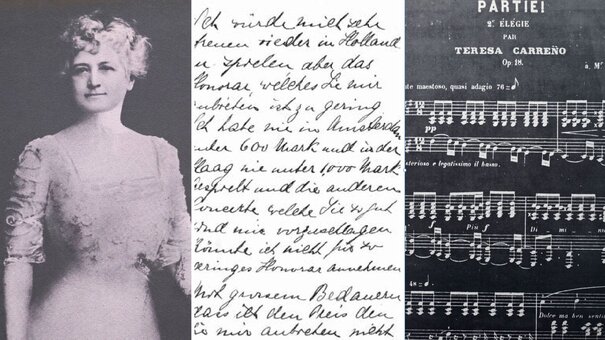 Ich würde mich sehr
freuen wieder in Holland
zu spielen aber das
Honorar, welches Sie mir
anbieten ist zu gering
Ich habe nie in Amsterdam
unter 600 Mark und in der
Haag nie unter 1000 Mark
gespielt und die anderen
Concerte, welche Sie so gut
sind mir vorzuschlagen
könnte ich nicht für so
geringes Honorar annehmen
Mit grossem Bedauern
dass ich den Preis den
Sie mir anbieten nicht
PARTIE!
2e ÉLÉGIE
PAR
TERESA CARREÑO
Op. 18.
à Me
maestoso, quasi adagio 76 =
pp
misterioso e legatissimo il basso.
sf
Pin f
Di - mi -
48 =
Dolce ma ben senti